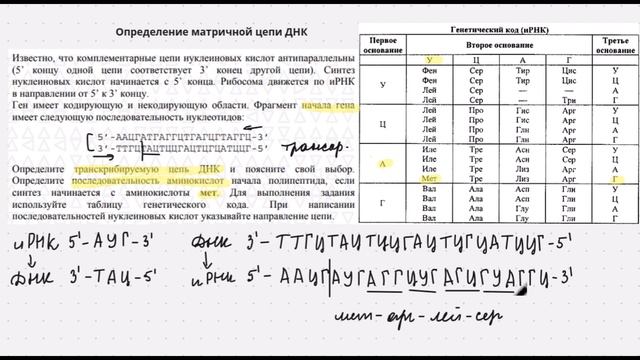 Определение матричной цепи ДНК
Известно, что комплементарные цепи нуклеиновых кислот антипараллельны
(5’ концу одной цепи соответствует 3’ конец другой цепи). Синтез
нуклеиновых кислот начинается с 5’ конца. Рибосома движется по иРНК
в направлении от 5’ к 3’ концу.
Ген имеет кодирующую и некодирующую области. Фрагмент начала гена
имеет следующую последовательность нуклеотидов:
5’-ААЦГАТГАГГЦТГАГЦГТАГГЦ-3’
3’-ТТГЦТАЦТЦЦГАЦТЦГЦАТЦЦГ-5’
транскр.
Определите транскрибируемую цепь ДНК и поясните свой выбор.
Определите последовательность аминокислот начала полипептида, если
синтез начинается с аминокислоты мет. Для выполнения задания
используйте таблицу генетического кода. При написании
последовательностей нуклеиновых кислот указывайте направление цепи.
Генетический код (иРНК)
Первое основание Второе основание Третье основание
У Ц А Г
У
Фен Сер Тир Цис У
Фен Сер Тир Цис Ц
Лей Сер — — А
Лей Сер — Три Г
Ц
Лей Про Гис Арг У
Лей Про Гис Арг Ц
Лей Про Глн Арг А
Лей Про Глн Арг Г
А
Иле Тре Асн Сер У
Иле Тре Асн Сер Ц
Иле Тре Лиз Арг А
Мет Тре Лиз Арг Г
Г
Вал Ала Асп Гли У
Вал Ала Асп Гли Ц
Вал Ала Глу Гли А
Вал Ала Глу Гли Г
иРНК 5'-АУГ-3'
ДНК 3'-ТАЦ-5'
ДНК 3'-ТТГЦТАЦТЦЦГАЦТЦГЦАТЦЦГ-5'
иРНК 5'-ААЦГАУГАГГЦУГАГЦГУАГГЦ-3'
мет-арг-лей-сер